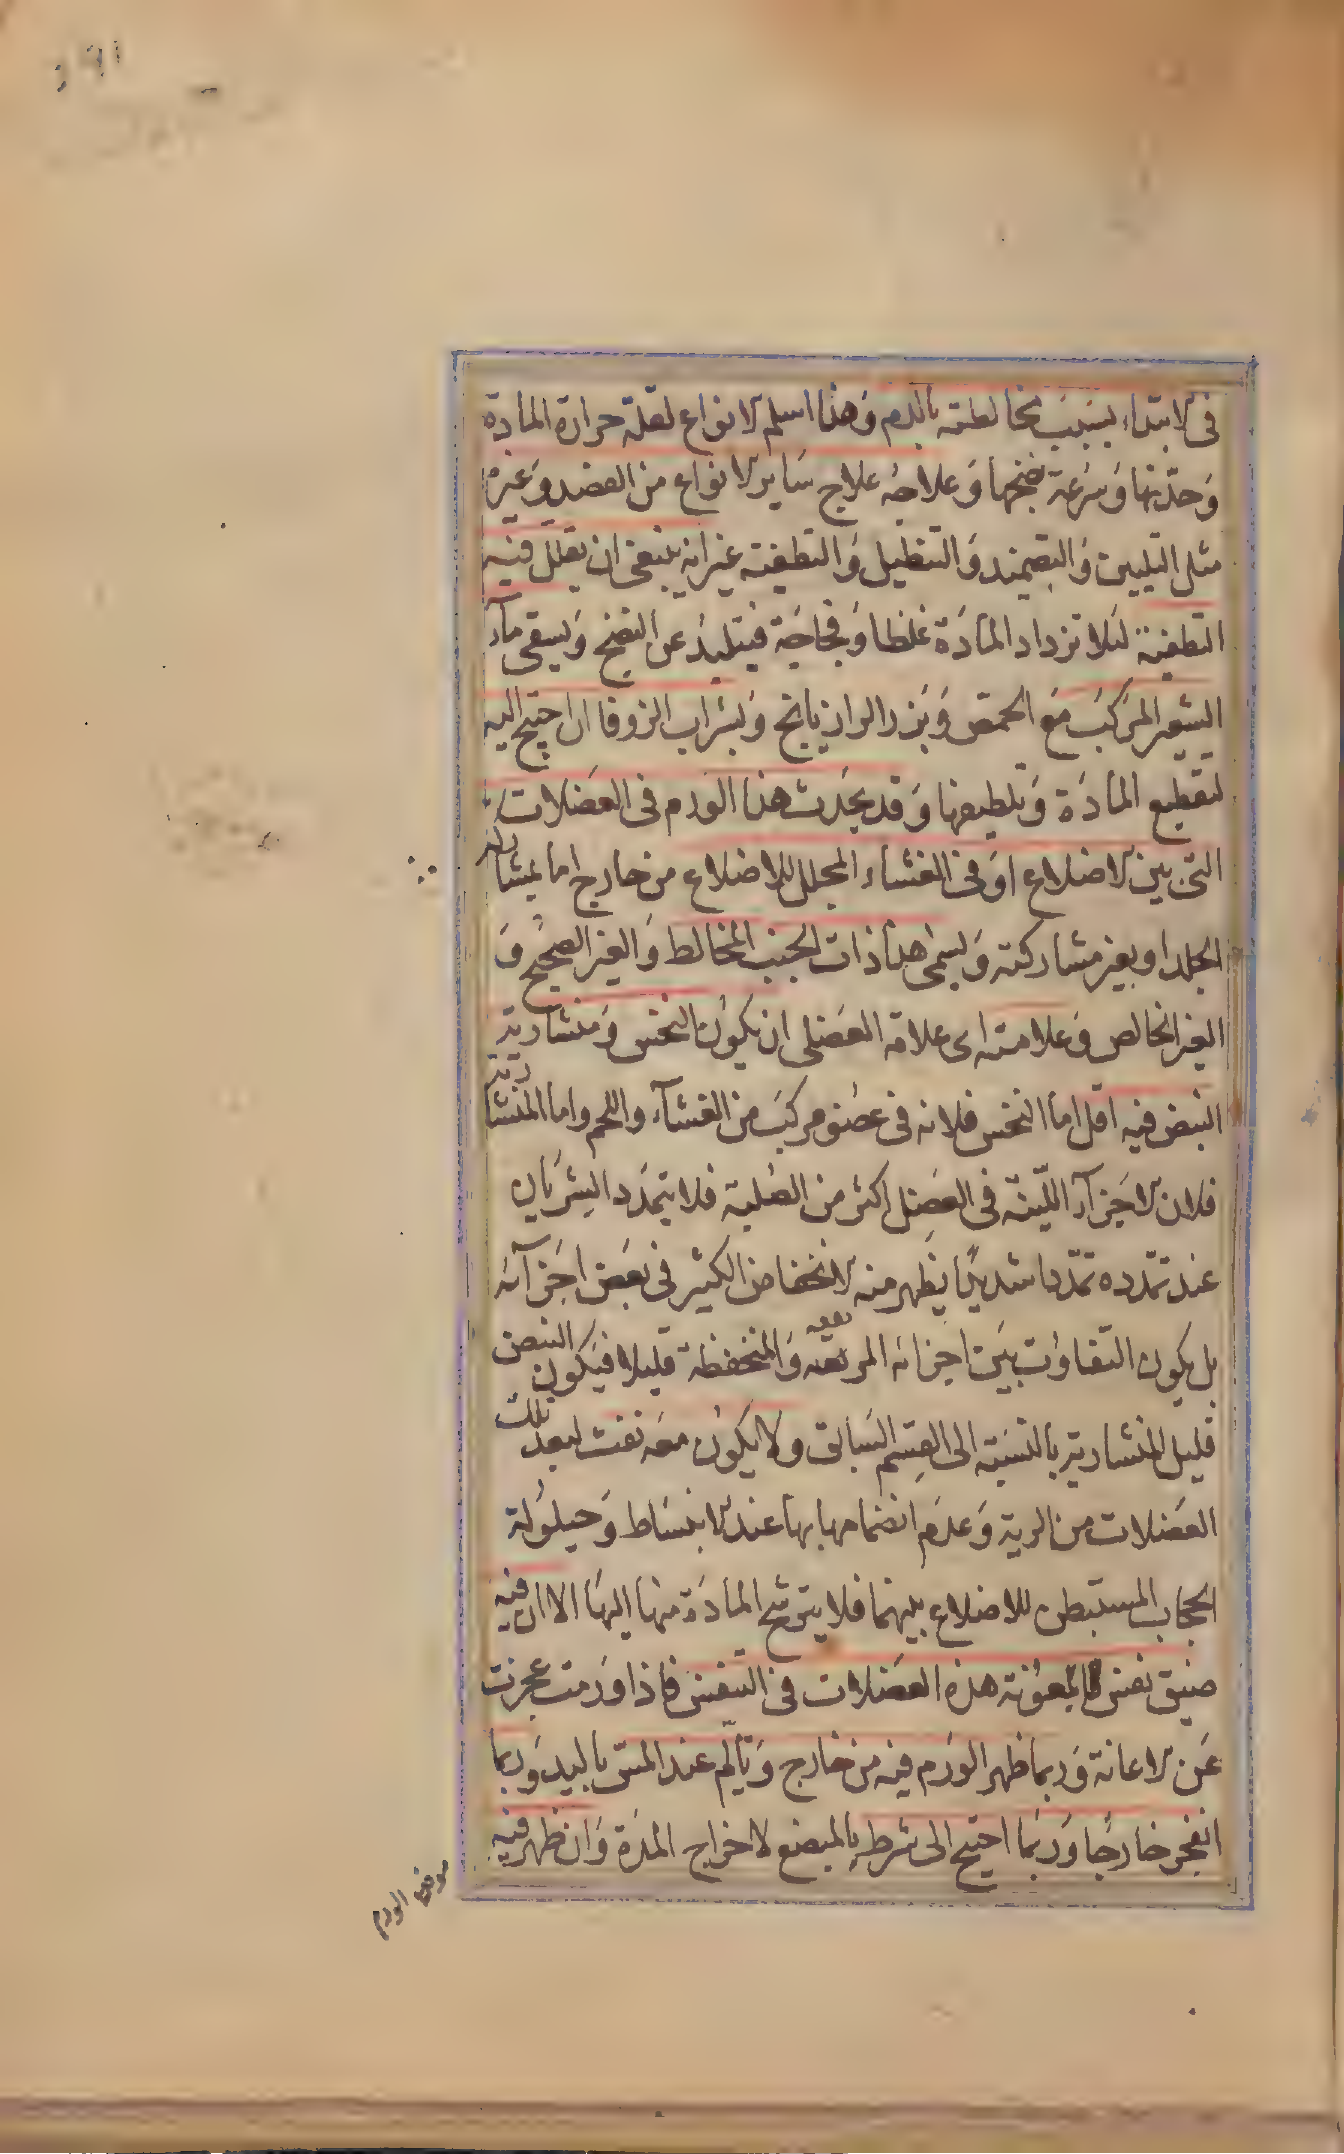 في الابتداء بسبب مخالطته بالدم وهذا اسلم الانواع لقلة حرارة المادة
وحدّتها وسرعة نضجها وعلاجه علاج ساير الانواع من الفصد وغيره
مثل التليين والتضميد والتنطيل والتطفية غير انه ينبغي ان يقلل فيه
التطفية لئلا تزداد المادة غلظا وفجاجة فيتبلد عن النضج ويسقى مآء
الشعير المركب مع الحمص وبزر الرازيانج وبشراب الزوفا ان احتيج اليه
لتقطيع المادة وتلطيفها وقد يحدث هذا الورم في العضلات
التي بين الاضلاع او في الغشاء المجلل للاضلاع من خارج اما بمشاركة
الجلد او بغير مشاركته ويسمى هذا ذات الجنب المخالط والغير الصحيح و
الغير الخالص وعلامته اى علامة العضلى ان يكون النخس ومنشارية
النبض فيه اقل اما النخس فلانه في عضو مركب من الغشآء واللحم واما المنشارية
فلان الاجزآء اللّينة في العضل اكثر من الصلبة فلا يتمدد الشريان
عند تمدّده تمدّدا شديدًا يظهر منه الانخفاض الكثير في بعض اجزآئه
بل يكون التفاوت بين اجزائه المرتفعة والمنخفظة قليلا فيكون النبض
قليل المنشارية بالنسبة الى القسم السابق ولا يكون معه نفث لبعد تلك
العضلات من الرية وعدم انضمامها بها عند الانبساط وحيلولة
الحجاب المستبطن للاضلاع بينهما فلا يترشح المادة منها اليها الا ان فيه
ضيق نفس لمعونة هذه العضلات في التنفس فاذا ورمت عجزت
عن الاعانة وربما ظهر الورم فيه من خارج وتألم عند المس باليد وربما
انفجر خارجًا وربما احتيج الى شرطه بالمبضع لاخراج المدة وان ظهر فيه
موضع الورم